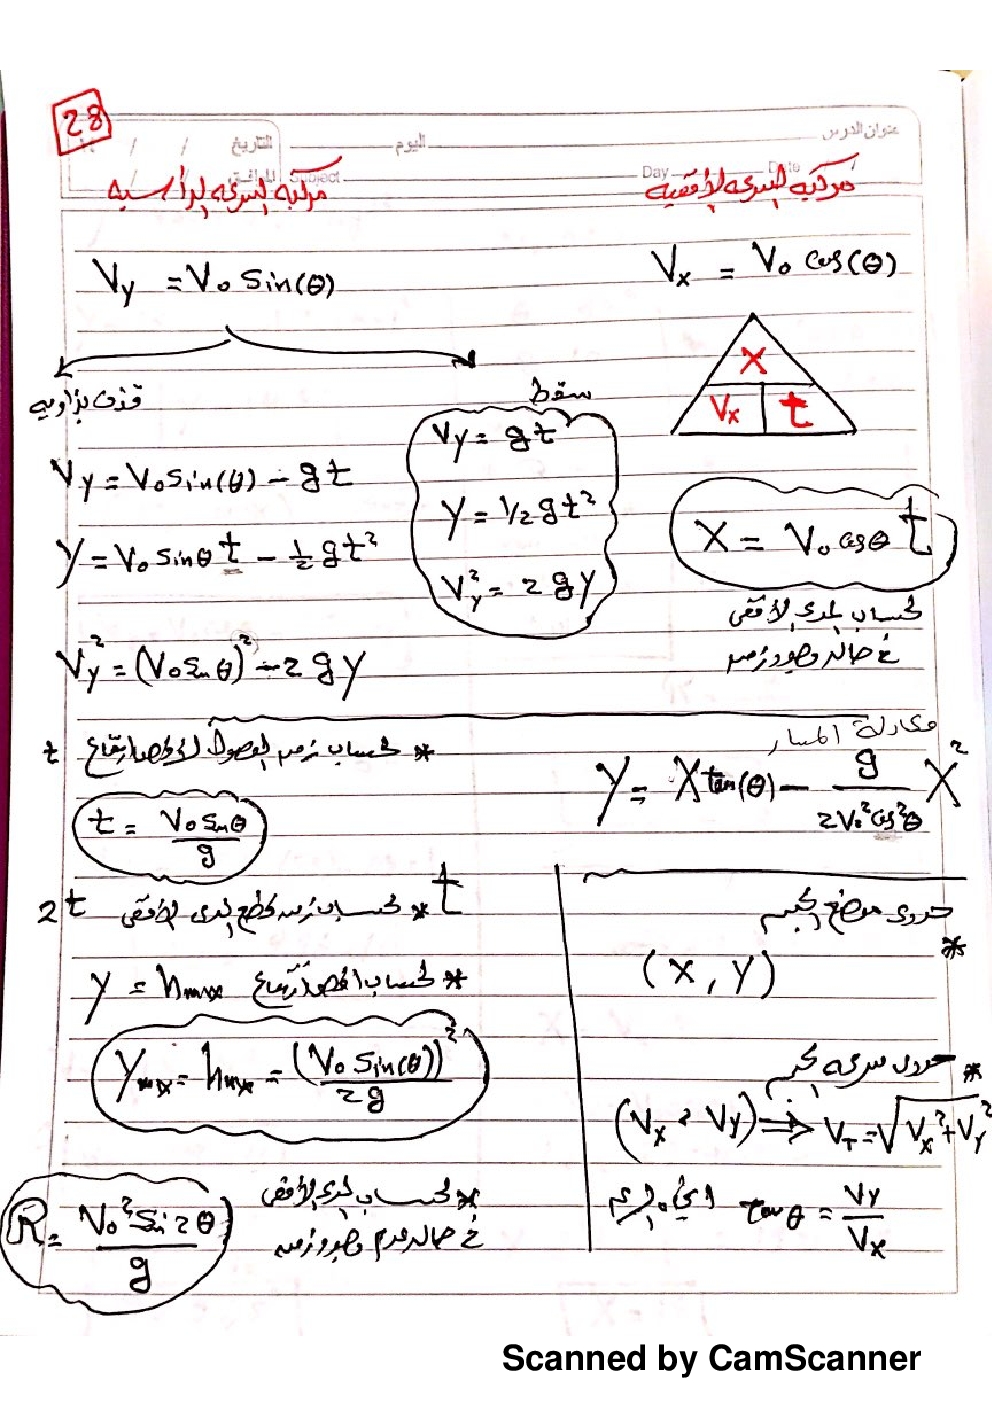 28
عنوان الدرس
اليوم
التاريخ
Day
Date
Subject
مركبة السرعه الأفقيه
مركبة السرعه الرأسيه
Vx = V₀ cos(θ)
Vy = V₀ sin(θ)
X
Vx t
قذف بزاويه
سقط
Vy = V₀ sin(θ) - gt
Y = V₀ sinθ t - 1/2 gt²
Vy² = (V₀ sinθ)² - 2gy
Vy = gt
Y = 1/2 gt²
Vy² = 2gy
X = V₀ cosθ t
لحساب المدى الأفقى
فى حاله وجود زمن
معادلة المسار
Y = X tan(θ) - g/(2V₀² cos²θ) X²
* لحساب زمن الوصول لأقصى ارتفاع t
t = V₀ sinθ / g
t
* لحساب زمن قطع المدى الأفقى 2t
* لحساب اقصى ارتفاع y = hmax
Ymax = hmax = (V₀ sin(θ))² / 2g
* لحساب المدى الأفقى
فى حاله عدم وجود زمن
R = V₀² Sin 2θ / g
موضع الجسم
*
(X, Y)
* سرعه الجسم
(Vx, Vy) ⇒ VT = √(Vx² + Vy²)
tanθ = Vy / Vx
Scanned by CamScanner